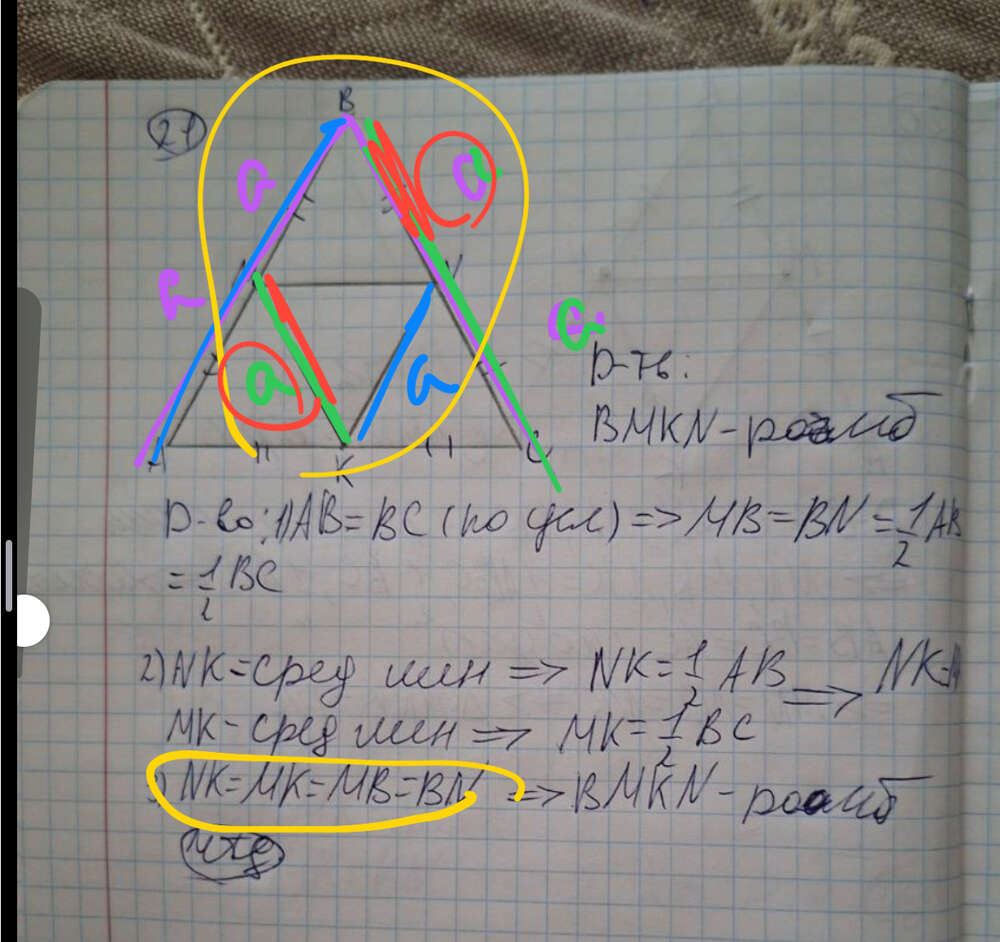 21
B
a
a
a
a
a
a
K
C
Д-ть:
BMKN-ромб
Д-во: 1) AB=BC (по усл) => MB=BN=1/2 AB
=1/2 BC
2) NK=сред лин => NK=1/2 AB => NK=
MK-сред лин => MK=1/2 BC
NK=MK=MB=BN => BMKN-ромб
чтд